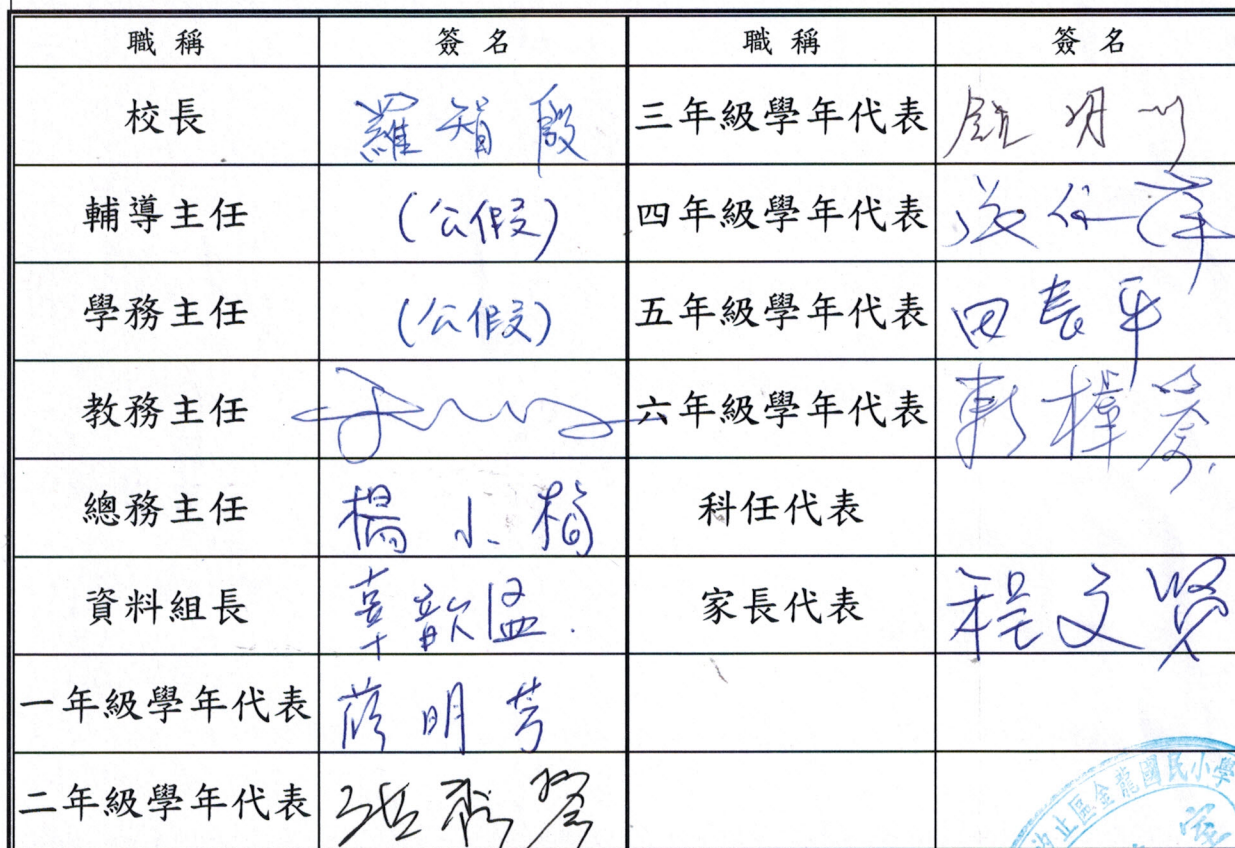 職稱 簽名 職稱 簽名
校長 羅智殷 三年級學年代表
輔導主任 (公假) 四年級學年代表
學務主任 (公假) 五年級學年代表 田長平
教務主任 六年級學年代表
總務主任 楊小梅 科任代表
資料組長 辜歆温 家長代表 程文賢
一年級學年代表 明芳
二年級學年代表 張
汐止區金龍國民小學